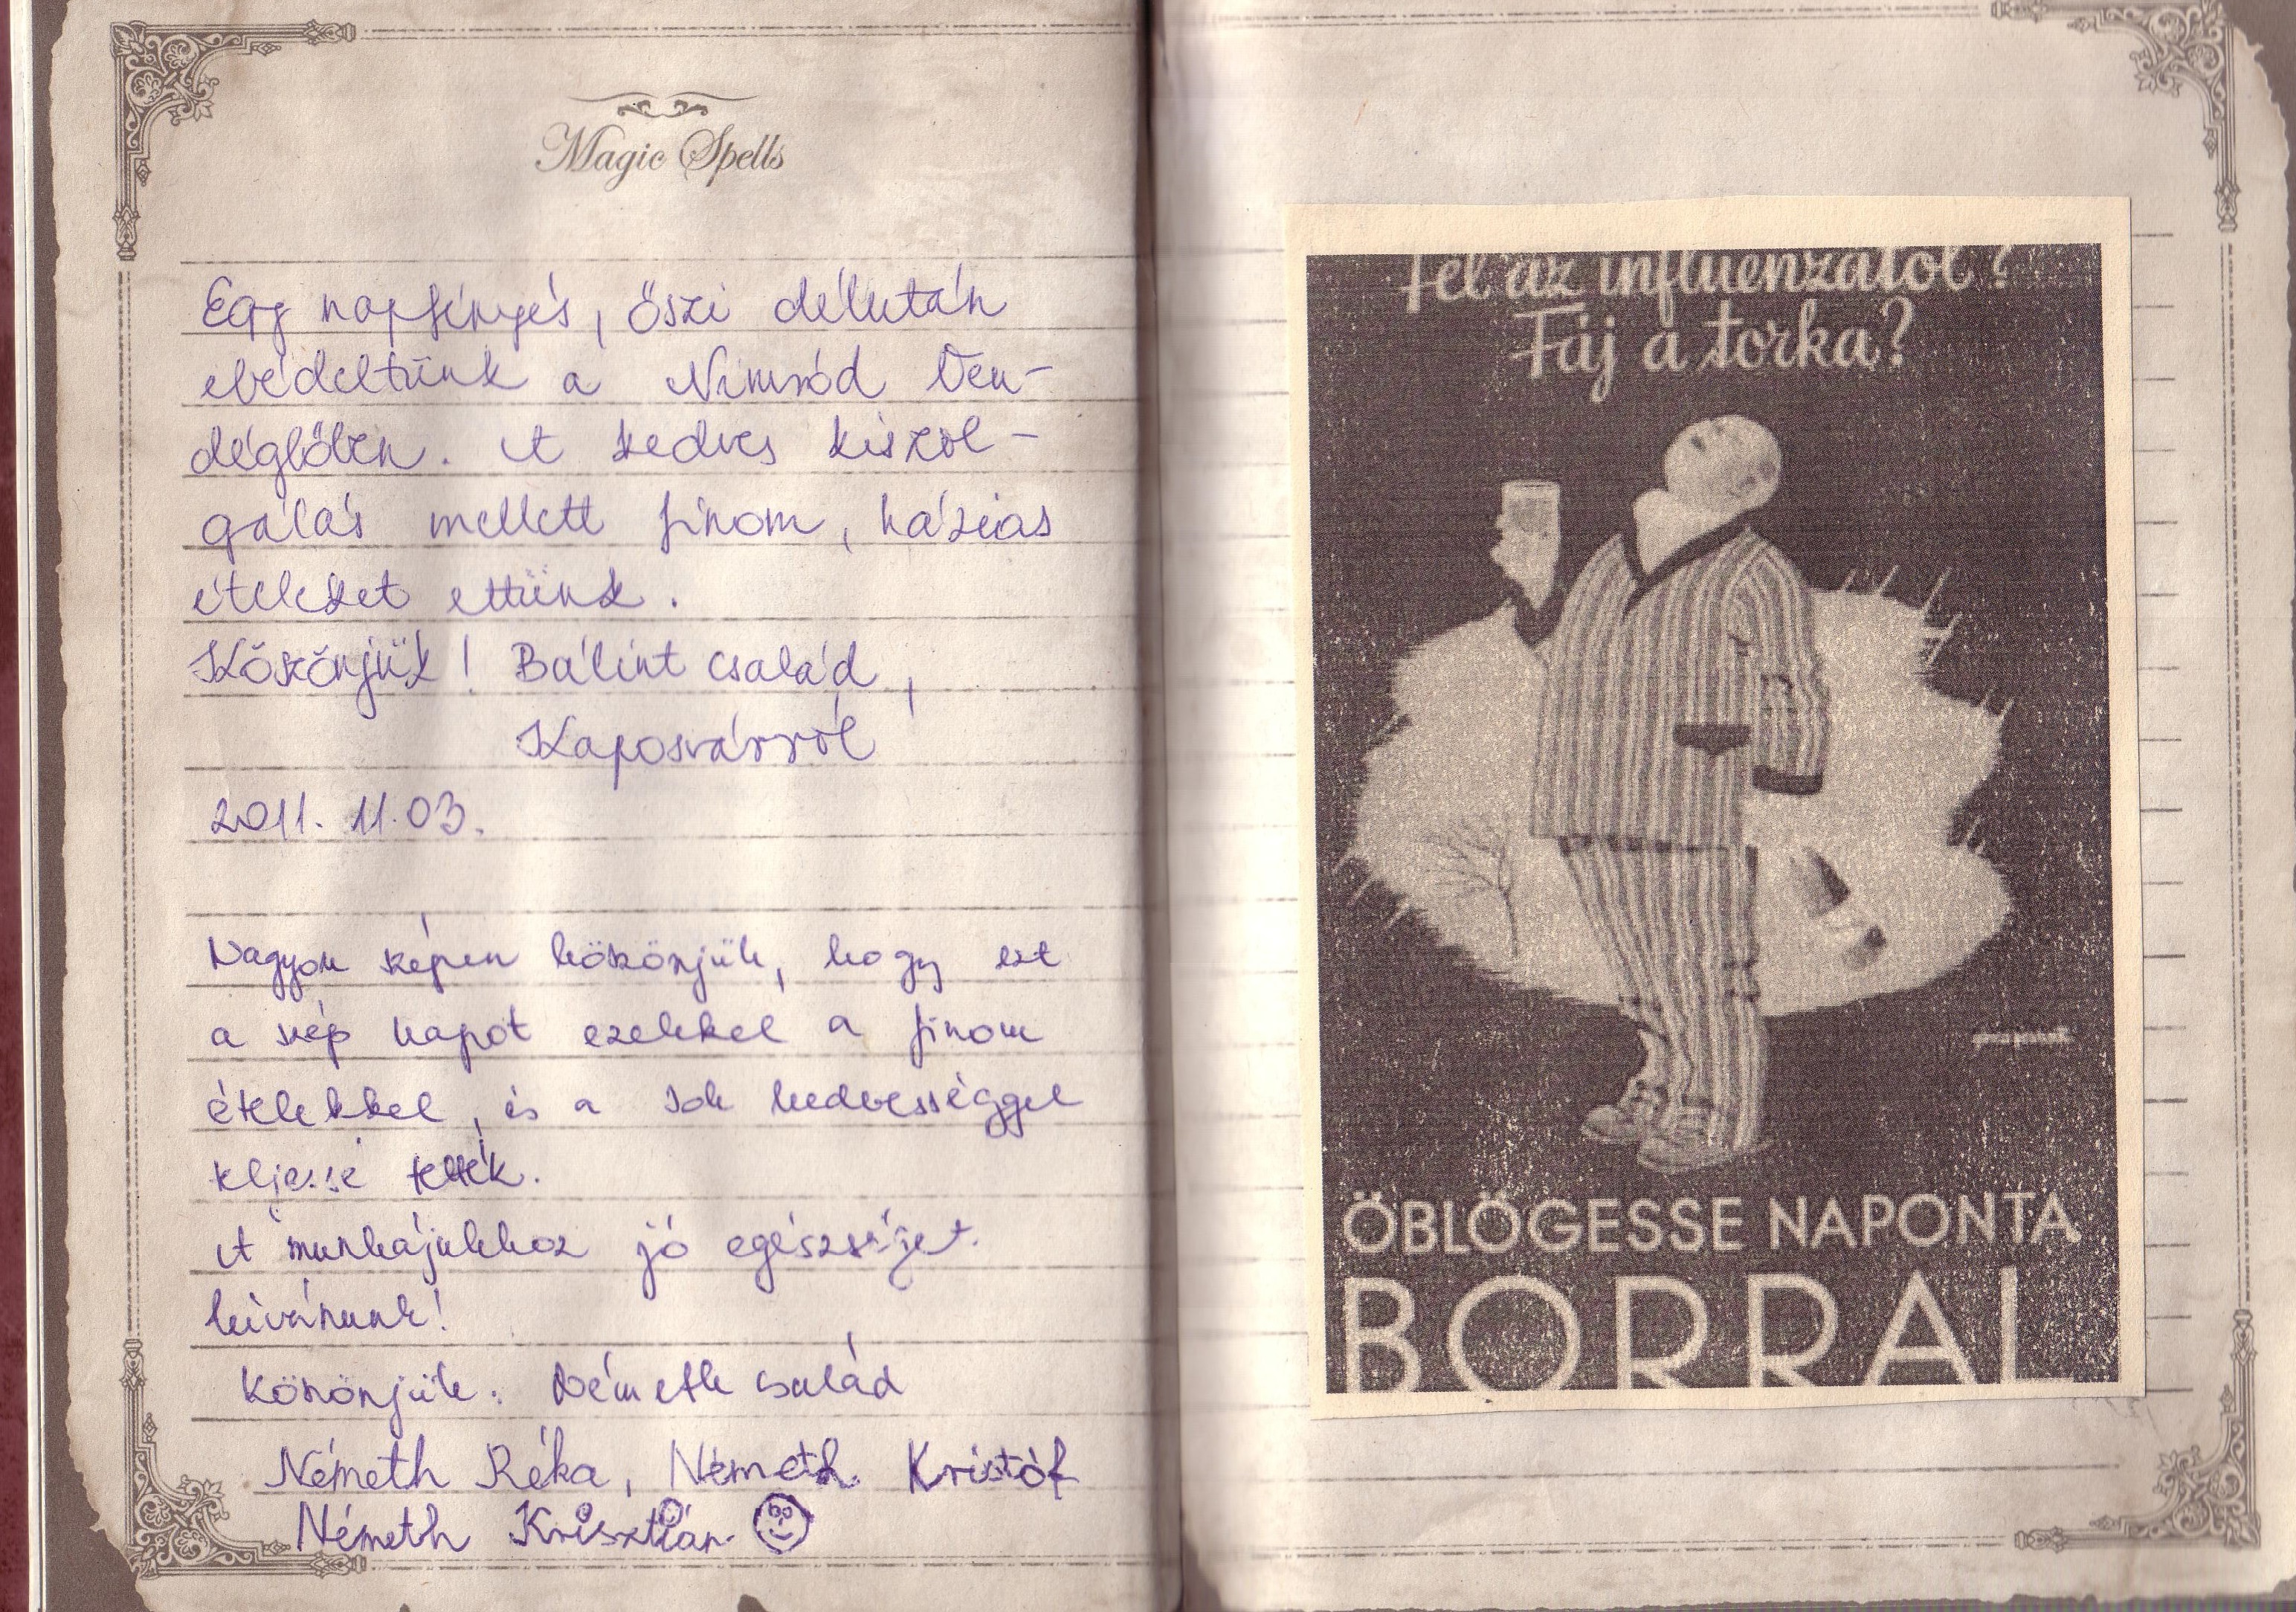 Magic Spells
Egy napfényés, őszi délután
ebédeltünk a Nimród Ven-
déglőben. A kedves kiszol-
gálás mellett finom, házias
ételeket ettünk.
Köszönjük! Bálint család,
Kaposvárról
2011. 11.03.
Nagyon szépen köszönjük, hogy ezt
a szép napot ezekkel a finom
ételekkel, és a sok kedvességgel
teljessé tették.
A munkájukhoz jó egészséget
kívánunk!
Köszönjük: Németh család
Németh Réka, Németh Kristóf
Németh Krisztián
Fél az influenzától?
Fáj a torka?
ÖBLÖGESSE NAPONTA
BORRAL